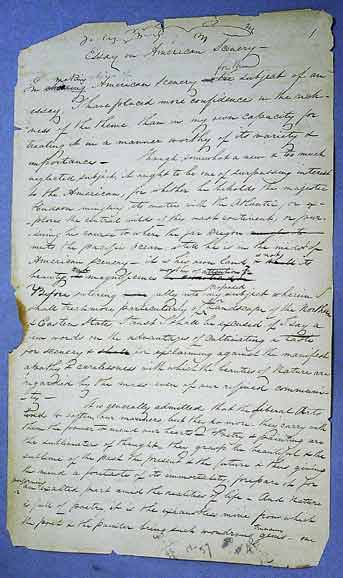 1
Essay on American Scenery—
In making American Scenery the subject of an
essay, I have placed more confidence in the rich-
ness of the theme than in my own capacity for
treating it in a manner worthy of its variety &
importance— Though somewhat a new & too much
neglected subject, it ought to be one of surpassing interest
to the American, for whether he beholds the majestic
Hudson mingle its waters with the Atlantic, or ex-
plore the central wilds of this vast continent, or pur-
suing his course to where the far Oregon
meets the pacific Ocean still he is in the midst of
American scenery— it is his own land, its
beauty its magnificence
Before entering into my subject wherein I
shall treat more particularly of the Landscape of the Northern
& Eastern States I trust I shall be excused if I say a
few words on the advantages of cultivating a taste
for scenery & in exclaiming against the manifest
apathy & carelessness with which the beauties of Nature are
regarded by the mass even of our refined communi-
ty— It is generally admitted that the liberal Arts
tend to soften our manners; but they do more: they carry with
them the power to mend our hearts— Poetry & painting are
the sublimates of thought, they grasp the beautiful & the
sublime of the past the present & the future & thus giving
the mind a foretaste of its immortality, prepare it for
performing an exalted part amid the realities of life— And Nature
is full of poetry, it is the mine from which
the poet & the painter bring such wondrous